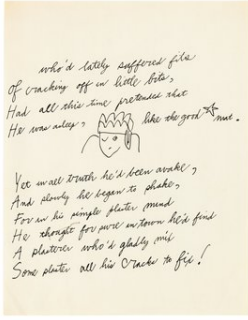 who'd lately suffered fits
Of cracking off in little bits,
Had all this time pretended that
He was asleep, like the good mat.
Yet in all truth he'd been awake,
And slowly he began to shake,
For in his simple plaster mind
He thought for sure in town he'd find
A plasterer who'd gladly mix
Some plaster all his cracks to fix!